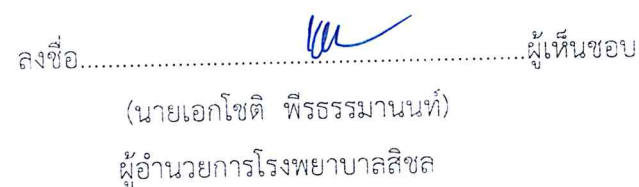 ลงชื่อ......................................................................ผู้เห็นชอบ
(นายเอกโชติ พีรธรรมานนท์)
ผู้อำนวยการโรงพยาบาลสิชล